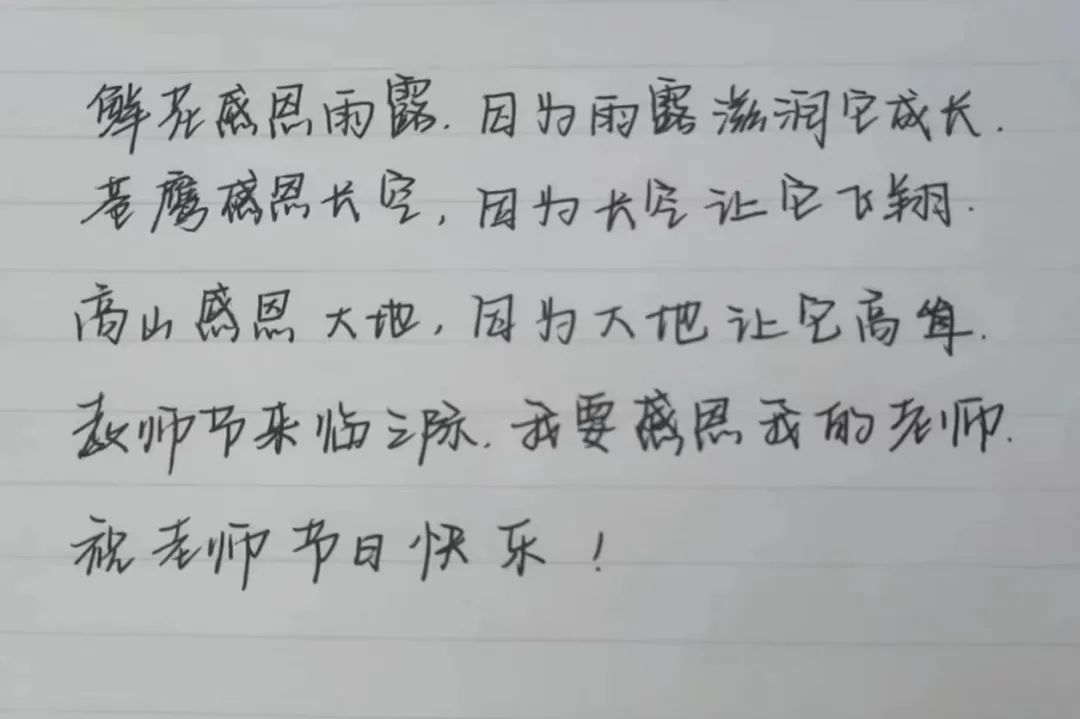 鲜花感恩雨露.因为雨露滋润它成长.
苍鹰感恩长空,因为长空让它飞翔.
高山感恩大地,因为大地让它高耸.
教师节来临之际.我要感恩我的老师.
祝老师节日快乐!